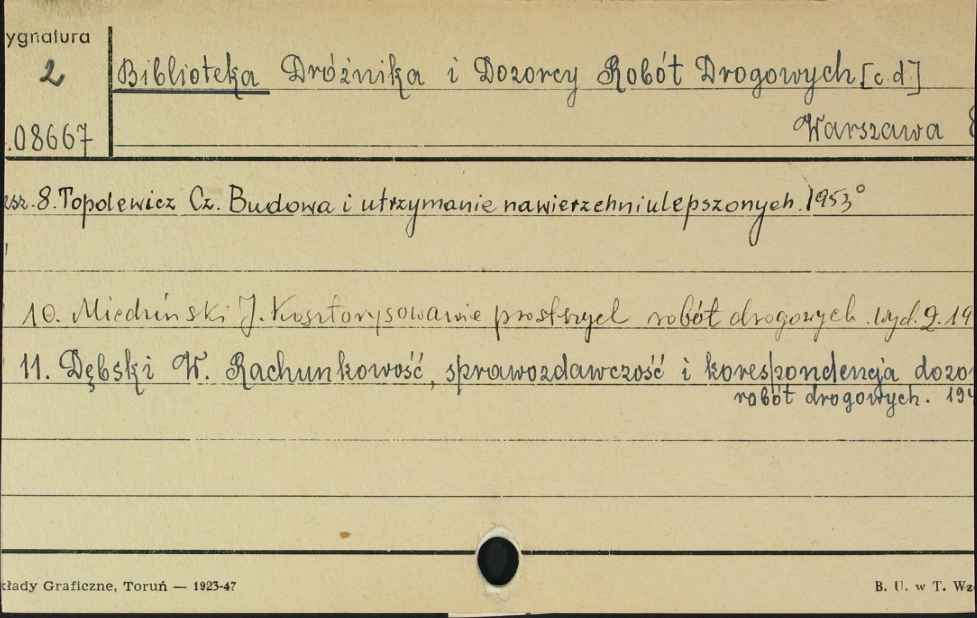 ygnatura
2
.08667
Biblioteka Dróżnika i Dozorcy Robót Drogowych [c.d.]
Warszawa
esz. 8. Topolewicz Cz. Budowa i utrzymanie nawierzchni ulepszonych. 1953°
10. Miedziński J. Kosztorysowanie prostszych robót drogowych. wyd. 2. 19
11. Dębski W. Rachunkowość, sprawozdawczość i korespondencja dozo
robót drogowych. 194
kłady Graficzne, Toruń — 1923-47
B. U. w T. Wz